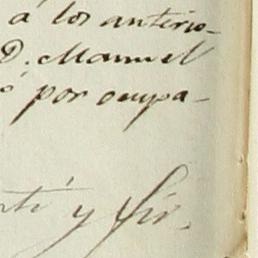 á los anterio-
D. Manuel
ó por ocupa-
y fir.